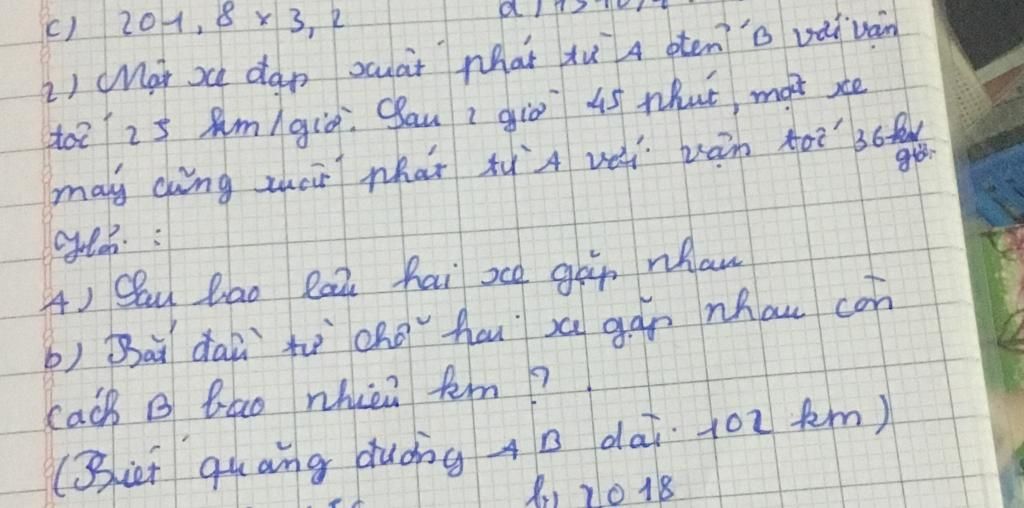 c) 201,8 x 3,2
2) Một xe đạp xuất phát từ A đến B với vận
tốc 25 km/giờ. Sau 2 giờ 45 phút, một xe
máy cũng xuất phát từ A với vận tốc 36 km/
giờ.
Hỏi :
A) Sau bao lâu hai xe gặp nhau
b) Bắt đầu từ chỗ hai xe gặp nhau còn
cách B bao nhiêu km ?
(Biết quãng đường AB dài 102 km)
b) 2018